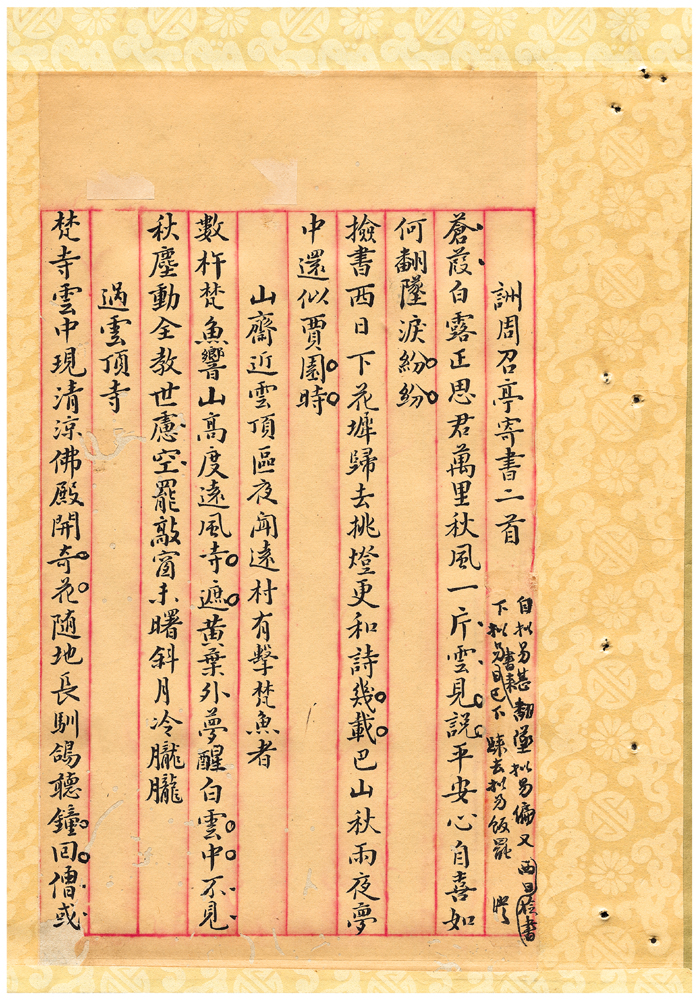 詶周召亭寄書二首
自拟易甚 翻墜拟易偏又 西日檢書
下拟易書來日已下 歸去拟易飯罷
蒼葭白露正思君萬里秋風一片雲見說平安心自喜如
何翻墜淚紛紛
撿書西日下花墀歸去挑燈更和詩幾載巴山秋雨夜夢
中還似賈園時
山齋近雲頂區夜聞遠村有擊梵魚者
數杵梵魚響山高度遠風寺遮黃葉外夢醒白雲中不見
秋塵動全教世慮空罷敲窗未曙斜月冷朧朧
過雲頂寺
梵寺雲中現清涼佛殿開奇花隨地長馴鴿聽鐘回僧或